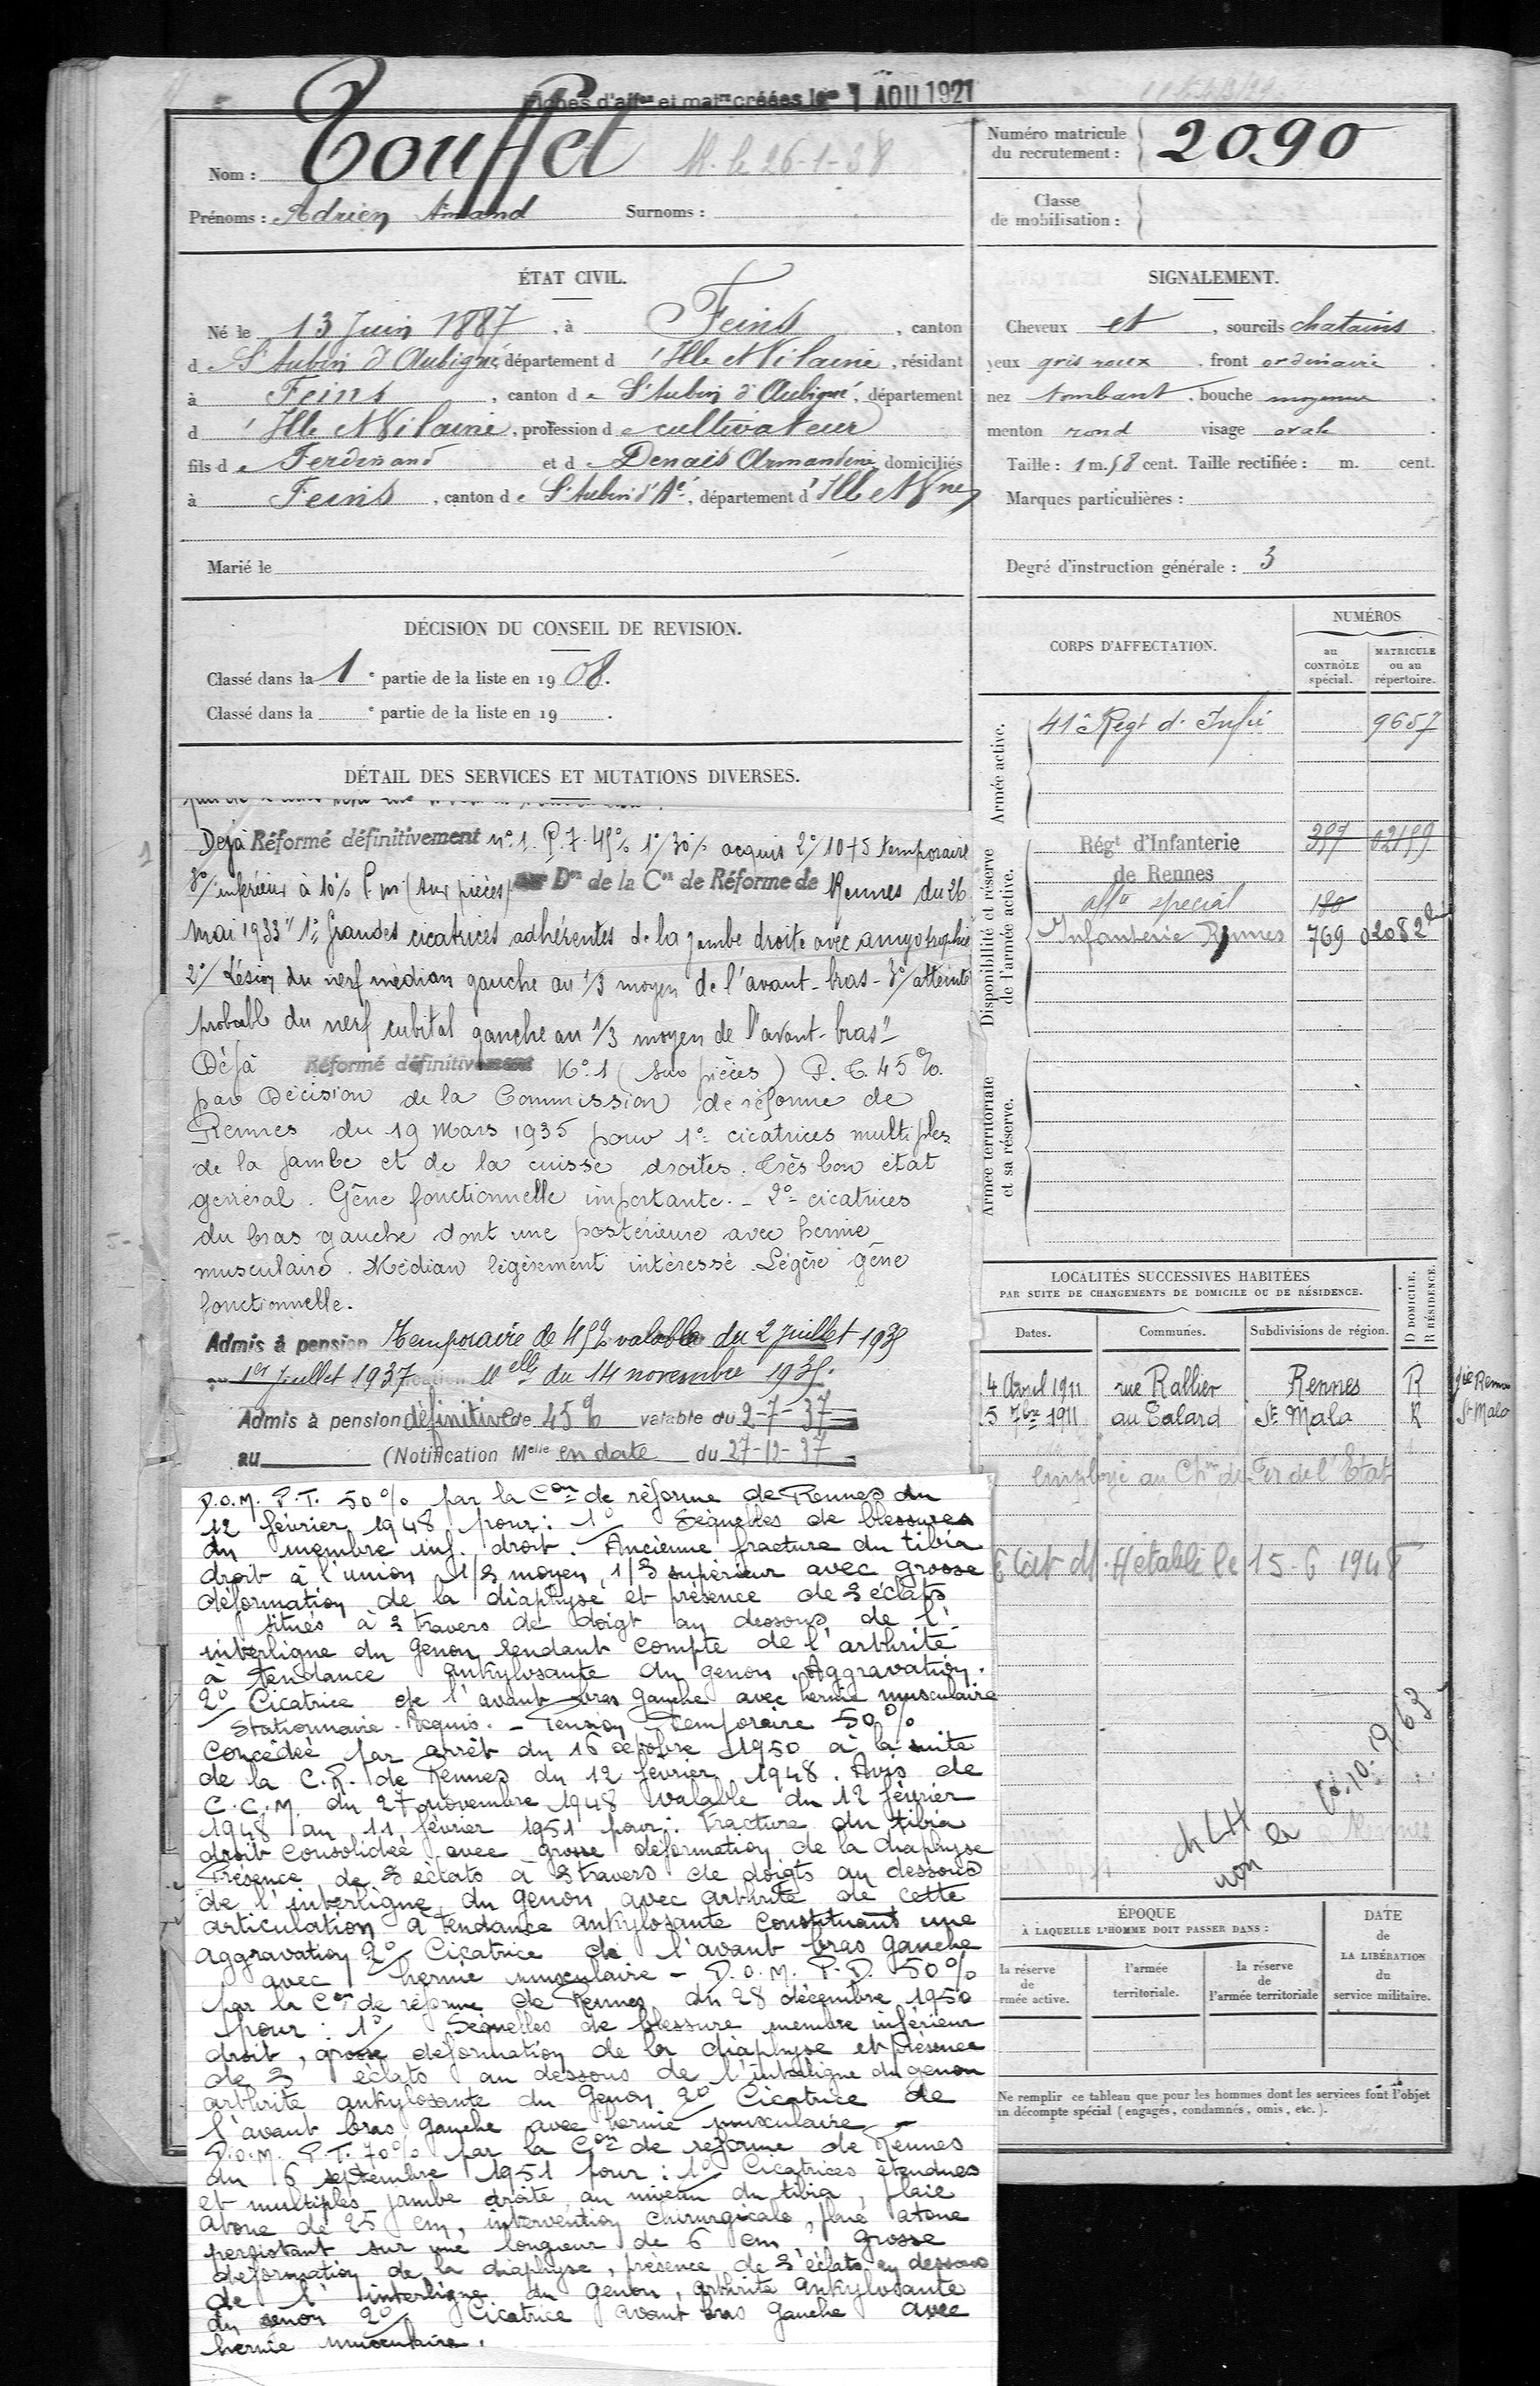 Fiches d'affon et matre créées le 1 AOU 1921
Nom : Touffet R. le 26-1-38
Prénoms : Adrien Amand Surnoms :
Numéro matricule du recrutement : 2090
Classe de mobilisation :
ÉTAT CIVIL.
Né le 13 Juin 1887, à Feins, canton
d St Aubin d'Aubigné, département d'Ille et Vilaine, résidant
à Feins, canton de St Aubin d'Aubigné, département
d'Ille et Vilaine, profession de cultivateur
fils de Ferdinand et de Denais Armandine domiciliés
à Feins, canton de St Aubin d'Aé, département d'Ille et Vne
Marié le
SIGNALEMENT.
Cheveux et, sourcils chatains
yeux gris roux, front ordinaire
nez tombant, bouche moyenne
menton rond visage ovale
Taille : 1 m. 58 cent. Taille rectifiée : m. cent.
Marques particulières :
Degré d'instruction générale : 3
DÉCISION DU CONSEIL DE REVISION.
Classé dans la 1e partie de la liste en 1908.
Classé dans la e partie de la liste en 19 .
DÉTAIL DES SERVICES ET MUTATIONS DIVERSES.
Dejà Réformé définitivement n° 1. P.T. 45% 1°/30% acquis 2°/10+5 temporaire
3°/inférieur à 10% P.m (sur pièces) Don de la Con de Réforme de Rennes du 26
mai 1933 "1° Grandes cicatrices adhérentes de la jambe droite avec amyotrophie
2°/ Lésion du nerf médian gauche au 1/3 moyen de l'avant-bras - 3°/ atteinte
probable du nerf cubital gauche au 1/3 moyen de l'avant-bras"
Déjà Réformé définitivement N° 1 (sur pièces) P.T. 45%.
par Décision de la Commission de réforme de
Rennes du 19 Mars 1935 pour 1° cicatrices multiples
de la jambe et de la cuisse droites. Très bon état
général. Gêne fonctionnelle importante. - 2° cicatrices
du bras gauche dont une postérieure avec hernie
musculaire. Médian légèrement intéressé. Légère gêne
fonctionnelle.
Admis à pension Temporaire de 45% valable du 2 juillet 1935
au 1er Juillet 1937 Melle du 14 novembre 1935.
Admis à pension définitive de 45% valable du 2-7-37
au (Notification Melle en date du 27-12-37
D.O.M. P.T. 50% par la Con de réforme de Rennes du
12 février 1948 pour : 1° Séquelles de blessures
du membre inf. droit. Ancienne fracture du tibia
droit à l'union 1/3 moyen, 1/3 supérieur avec grosse
déformation de la diaphyse et présence de 3 éclats
situés à 3 travers de doigt au dessous de l'
interligne du genou rendant compte de l'arthrite
à tendance ankylosante du genou. Aggravation.
2° Cicatrice de l'avant-bras gauche avec hernie musculaire
Stationnaire. Acquis. - Pension Temporaire 50%
Concédée par arrêt du 16 octobre 1950 à la suite
de la C.R. de Rennes du 12 février 1948. Avis de
C.C.M. du 27 novembre 1948 valable du 12 février
1948 au 11 février 1951 pour : Fracture du tibia
droit consolidée avec grosse déformation de la diaphyse
Présence de 3 éclats à 3 travers de doigts au dessous
de l'interligne du genou avec arthrite de cette
articulation à tendance ankylosante constituant une
aggravation 2° Cicatrice de l'avant bras gauche
avec hernie musculaire - D.O.M. P.D. 50%
par la Con de réforme de Rennes du 28 décembre 1950
pour : 1° Séquelles de blessure membre inférieur
droit, grosse déformation de la diaphyse et Présence
de 3 éclats au dessous de l'interligne du genou
arthrite ankylosante du genou 2° Cicatrice de
l'avant bras gauche avec hernie musculaire -
D.O.M. P.T. 70% par la Con de réforme de Rennes
du 6 septembre 1951 pour : 1° Cicatrices étendues
et multiples jambe droite au niveau du tibia, plaie
atone de 25 cm, intervention chirurgicale, plaie atone
persistant sur une longueur de 6 cm, grosse
déformation de la diaphyse, présence de 3 éclats en dessous
de l'interligne du genou, arthrite ankylosante
du genou 2° Cicatrice avant bras gauche avec
hernie musculaire.
CORPS D'AFFECTATION.
NUMÉROS
au CONTRÔLE spécial.
MATRICULE ou au répertoire.
Armée active.
41e Regt d'Infie 9657
Disponibilité et réserve de l'armée active.
Régt d'Infanterie 397 02199
de Rennes
affon special 180
Infanterie Rennes 769 02082
Armée territoriale et sa réserve.
LOCALITÉS SUCCESSIVES HABITÉES
PAR SUITE DE CHANGEMENTS DE DOMICILE OU DE RÉSIDENCE.
Dates. Communes. Subdivisions de région. D DOMICILE. R RÉSIDENCE.
4 Avril 1911 rue Rallier Rennes R
5 7bre 1911 au Talard St Malo R St Malo
employé au Chin de Fer de l'Etat
établi le 15-6 1948
ÉPOQUE
À LAQUELLE L'HOMME DOIT PASSER DANS :
la réserve de l'armée active.
l'armée territoriale.
la réserve de l'armée territoriale
DATE de LA LIBÉRATION du service militaire.
Ne remplir ce tableau que pour les hommes dont les services font l'objet
un décompte spécial (engagés, condamnés, omis, etc.).